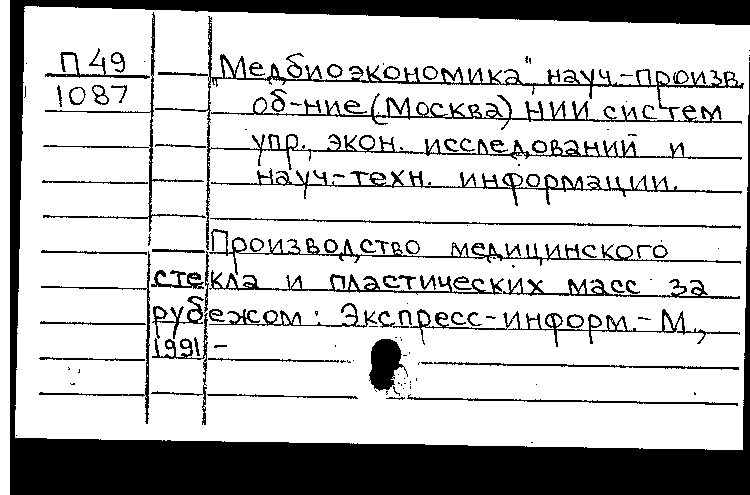 П 49
1087
"Медбиоэкономика", науч.-произв.
об-ние (Москва) НИИ систем
упр., экон. исследований и
науч.-техн. информации.
Производство медицинского
стекла и пластических масс за
рубежом: Экспресс-информ.-М.,
1991 -